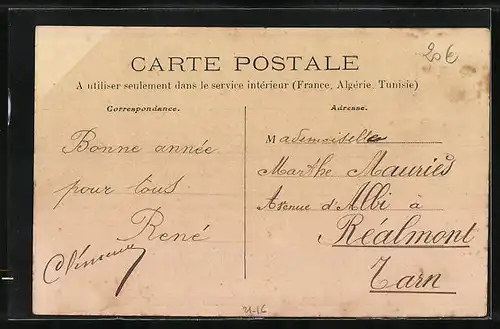 20€
CARTE POSTALE
A utiliser seulement dans le service intérieur (France, Algérie, Tunisie)
Correspondance.
Adresse.
Bonne année
pour tous
René
Clémence
Mademoiselle
Marthe Mauriès
Avenue d'Albi à
Réalmont
Tarn